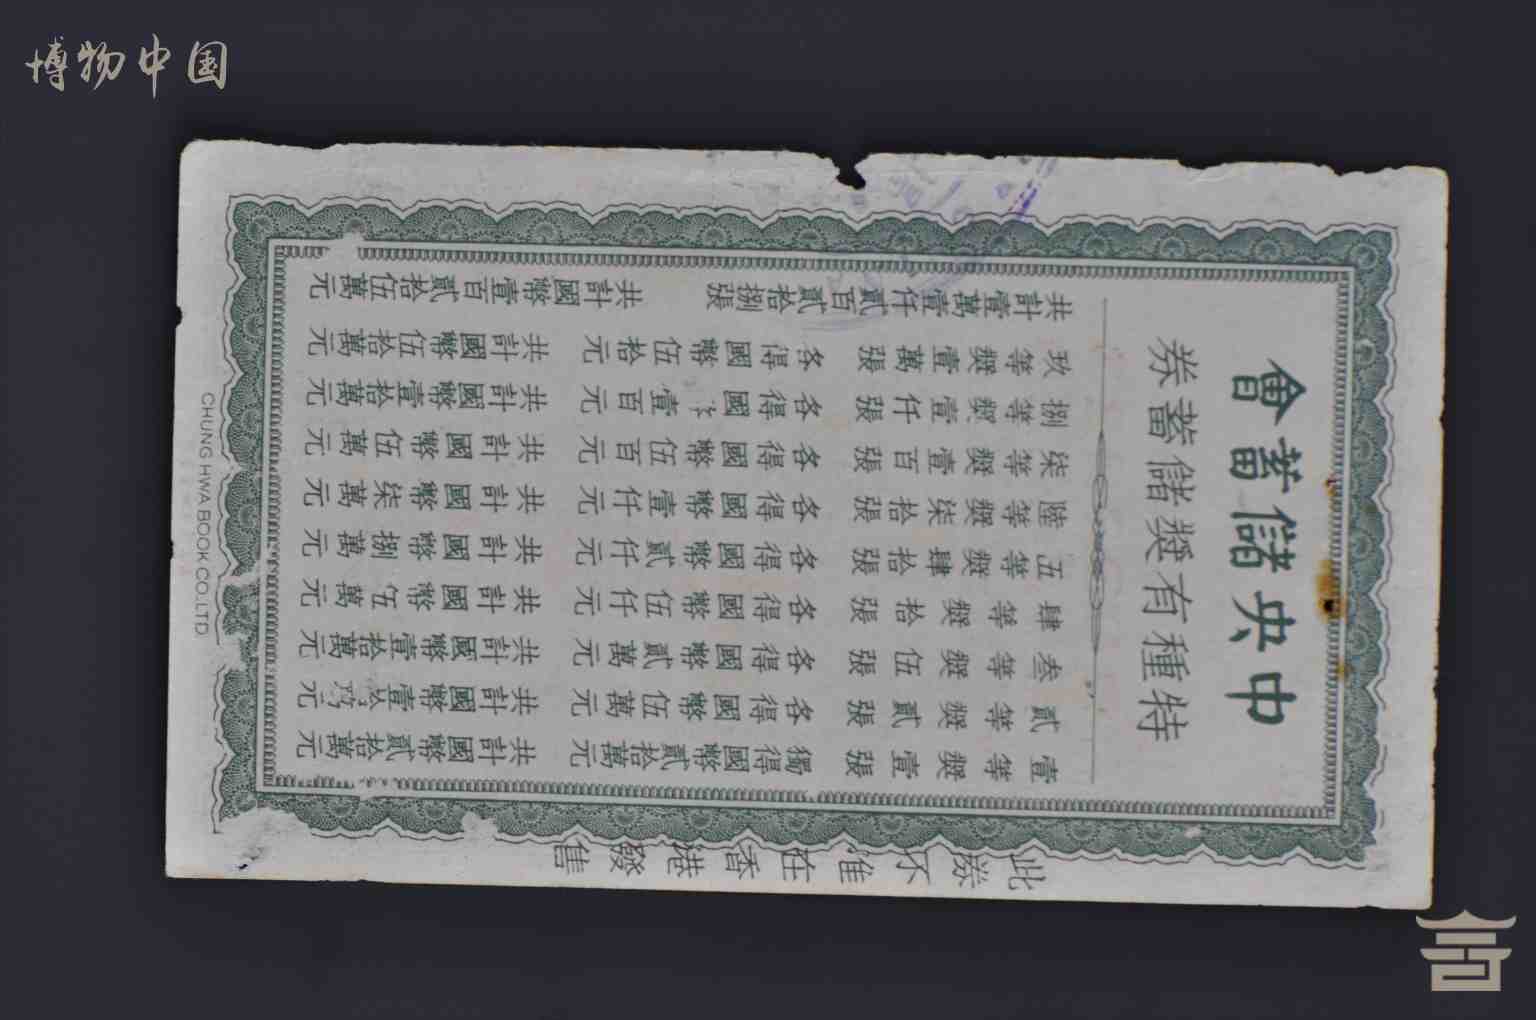 博物中国
中央儲蓄會
特種有獎儲蓄券
壹等獎壹張 獨得國幣貳拾萬元 共計國幣貳拾萬元
貳等獎貳張 各得國幣伍萬元 共計國幣壹拾萬元
叁等獎伍張 各得國幣貳萬元 共計國幣壹拾萬元
肆等獎拾張 各得國幣伍仟元 共計國幣伍萬元
五等獎肆拾張 各得國幣貳仟元 共計國幣捌萬元
陸等獎柒拾張 各得國幣壹仟元 共計國幣柒萬元
柒等獎壹百張 各得國幣伍百元 共計國幣伍萬元
捌等獎壹仟張 各得國壹百元 共計國幣壹拾萬元
玖等獎壹萬張 各得國幣伍拾元 共計國幣伍拾萬元
共計壹萬壹仟貳百貳拾捌張 共計國幣壹百貳拾伍萬元
此券不准在香港發售
CHUNG HWA BOOK CO. LTD.